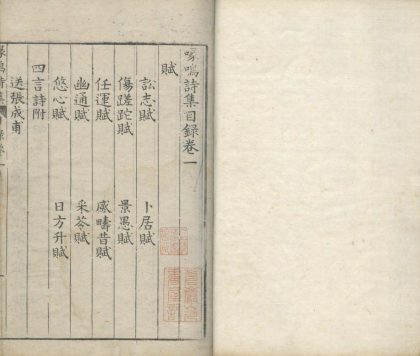 喙鳴詩集目錄卷一
賦
訟志賦　卜居賦
傷蹉跎賦　景愚賦
任運賦　感疇昔賦
幽通賦　采苓賦
悠心賦　日方升賦
四言詩附
送張成甫